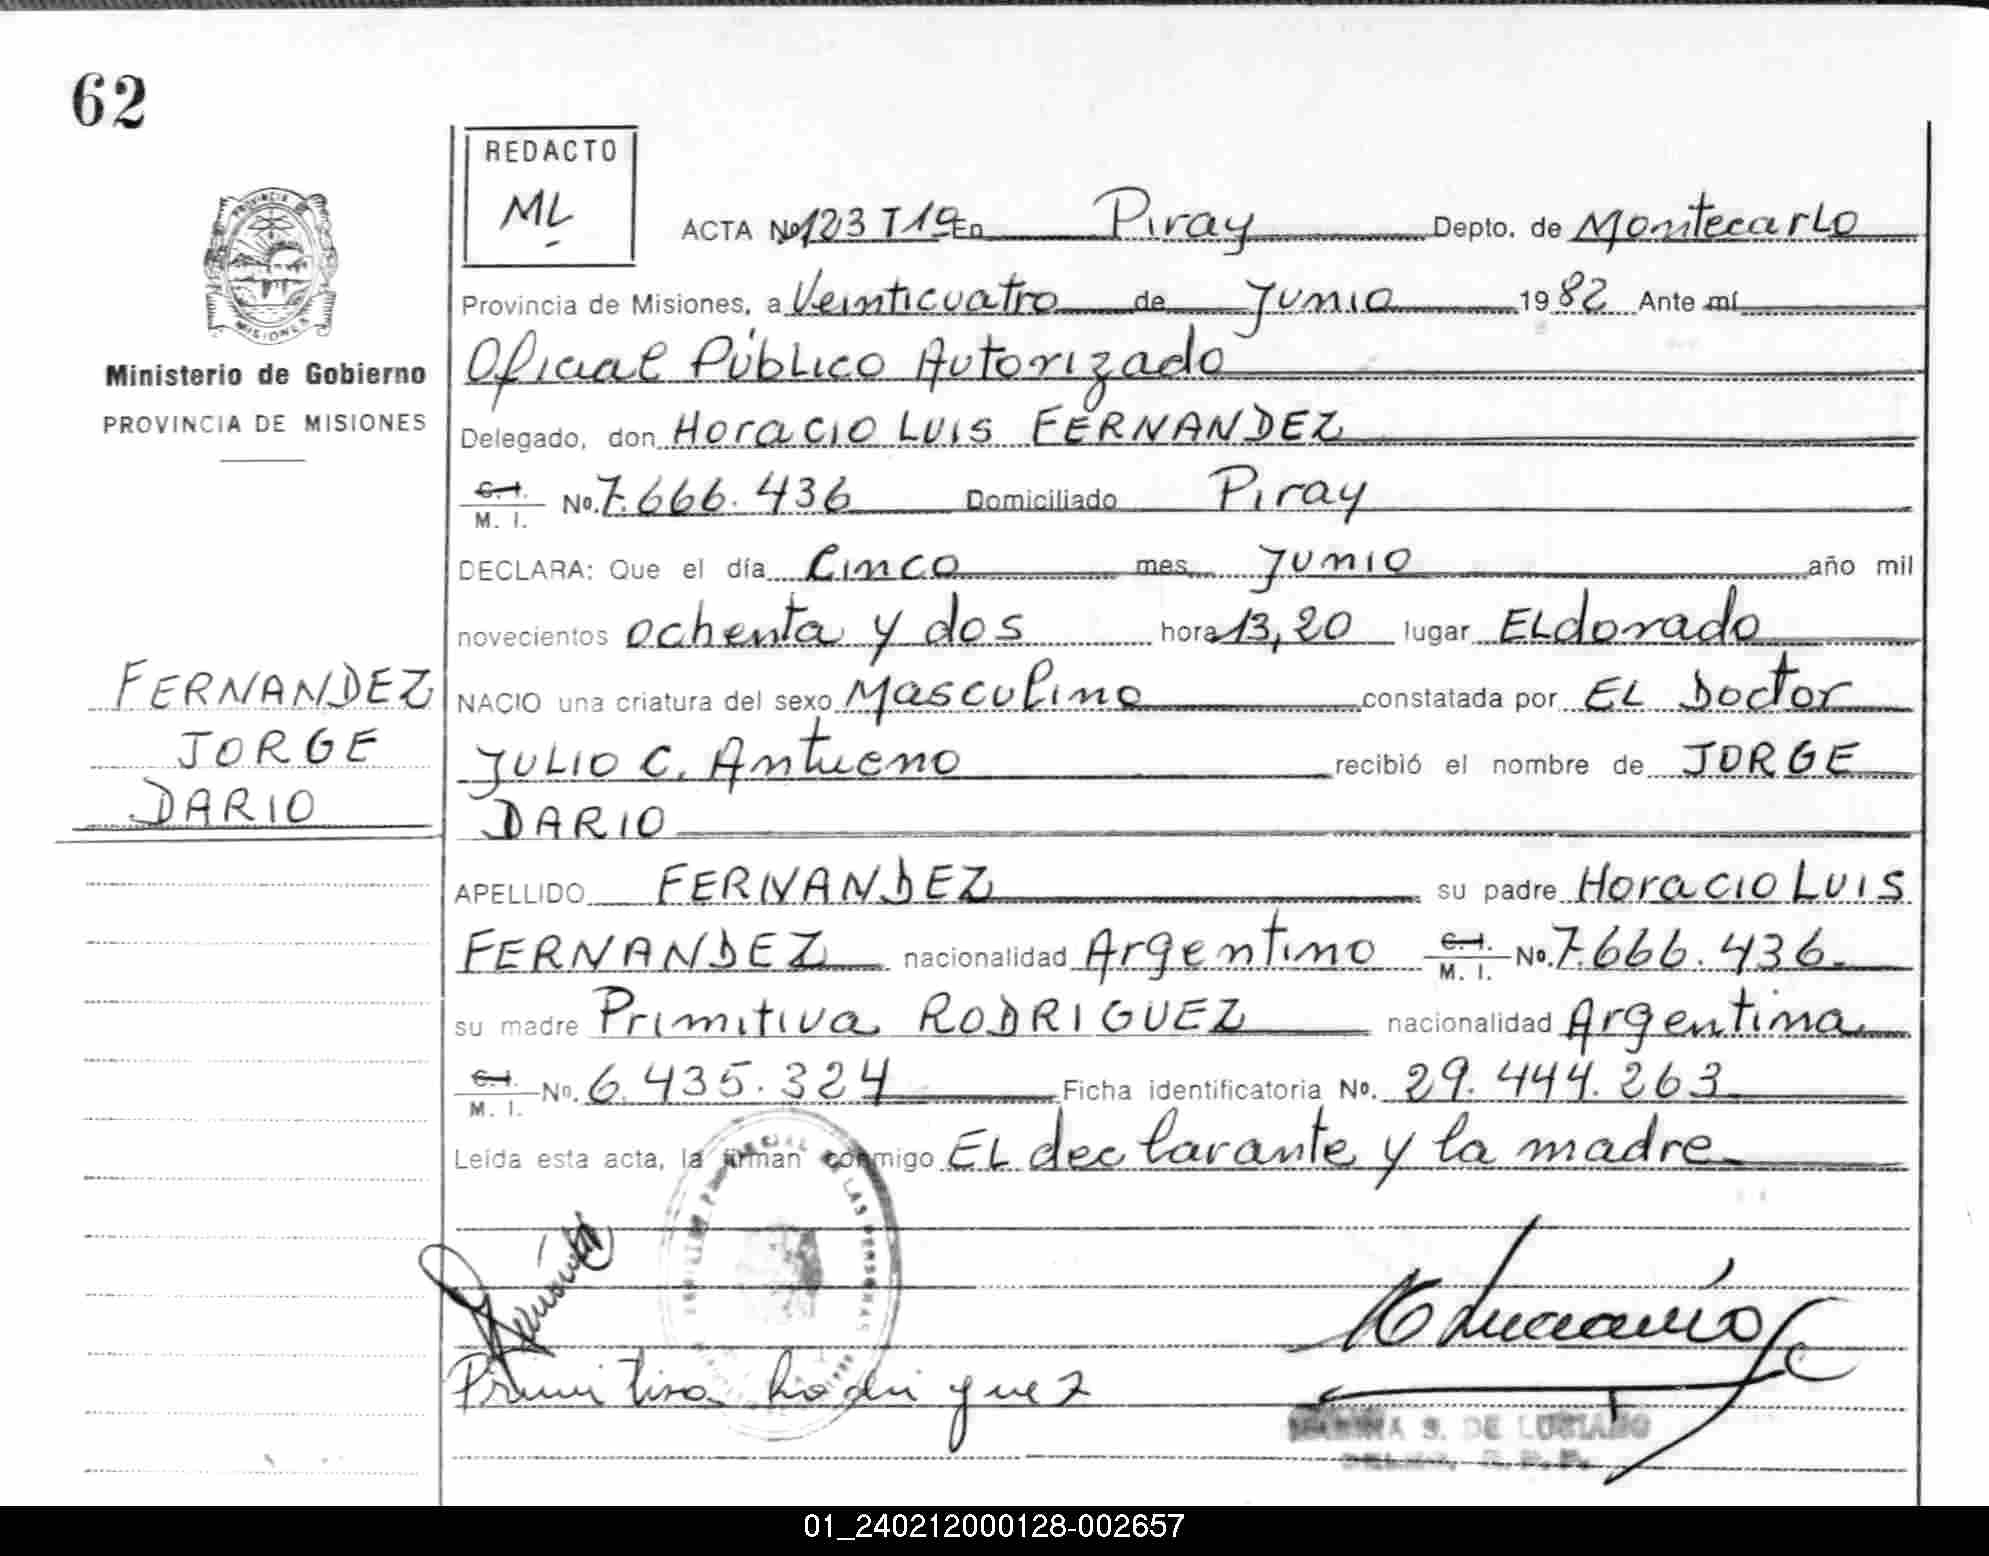 62
REDACTO
ML
ACTA Nº 123 T19 En Piray Depto. de Montecarlo
Provincia de Misiones, a Veinticuatro de Junio 1982 Ante mí
Oficial Público Autorizado
Delegado, don Horacio Luis FERNANDEZ
C. I.
M. I. Nº. 7.666.436 Domiciliado Piray
DECLARA: Que el día Cinco mes Junio año mil
novecientos ochenta y dos hora 13,20 lugar ELdorado
NACIO una criatura del sexo Masculino constatada por EL Doctor
JULIO C. Antueno recibió el nombre de JORGE
DARIO
APELLIDO FERNANDEZ su padre Horacio Luis
FERNANDEZ nacionalidad Argentino C. I.
M. I. Nº. 7.666.436.
su madre Primitiva RODRIGUEZ nacionalidad Argentina
C. I.
M. I. Nº. 6.435.324 Ficha identificatoria Nº. 29.444.263
Leída esta acta, la firman conmigo EL declarante y la madre
Primitiva Rodriguez
S. DE LUCIANO
PROVINCIA
MISIONES
Ministerio de Gobierno
PROVINCIA DE MISIONES
FERNANDEZ
JORGE
DARIO
DE LAS PERSONAS
01_240212000128-002657